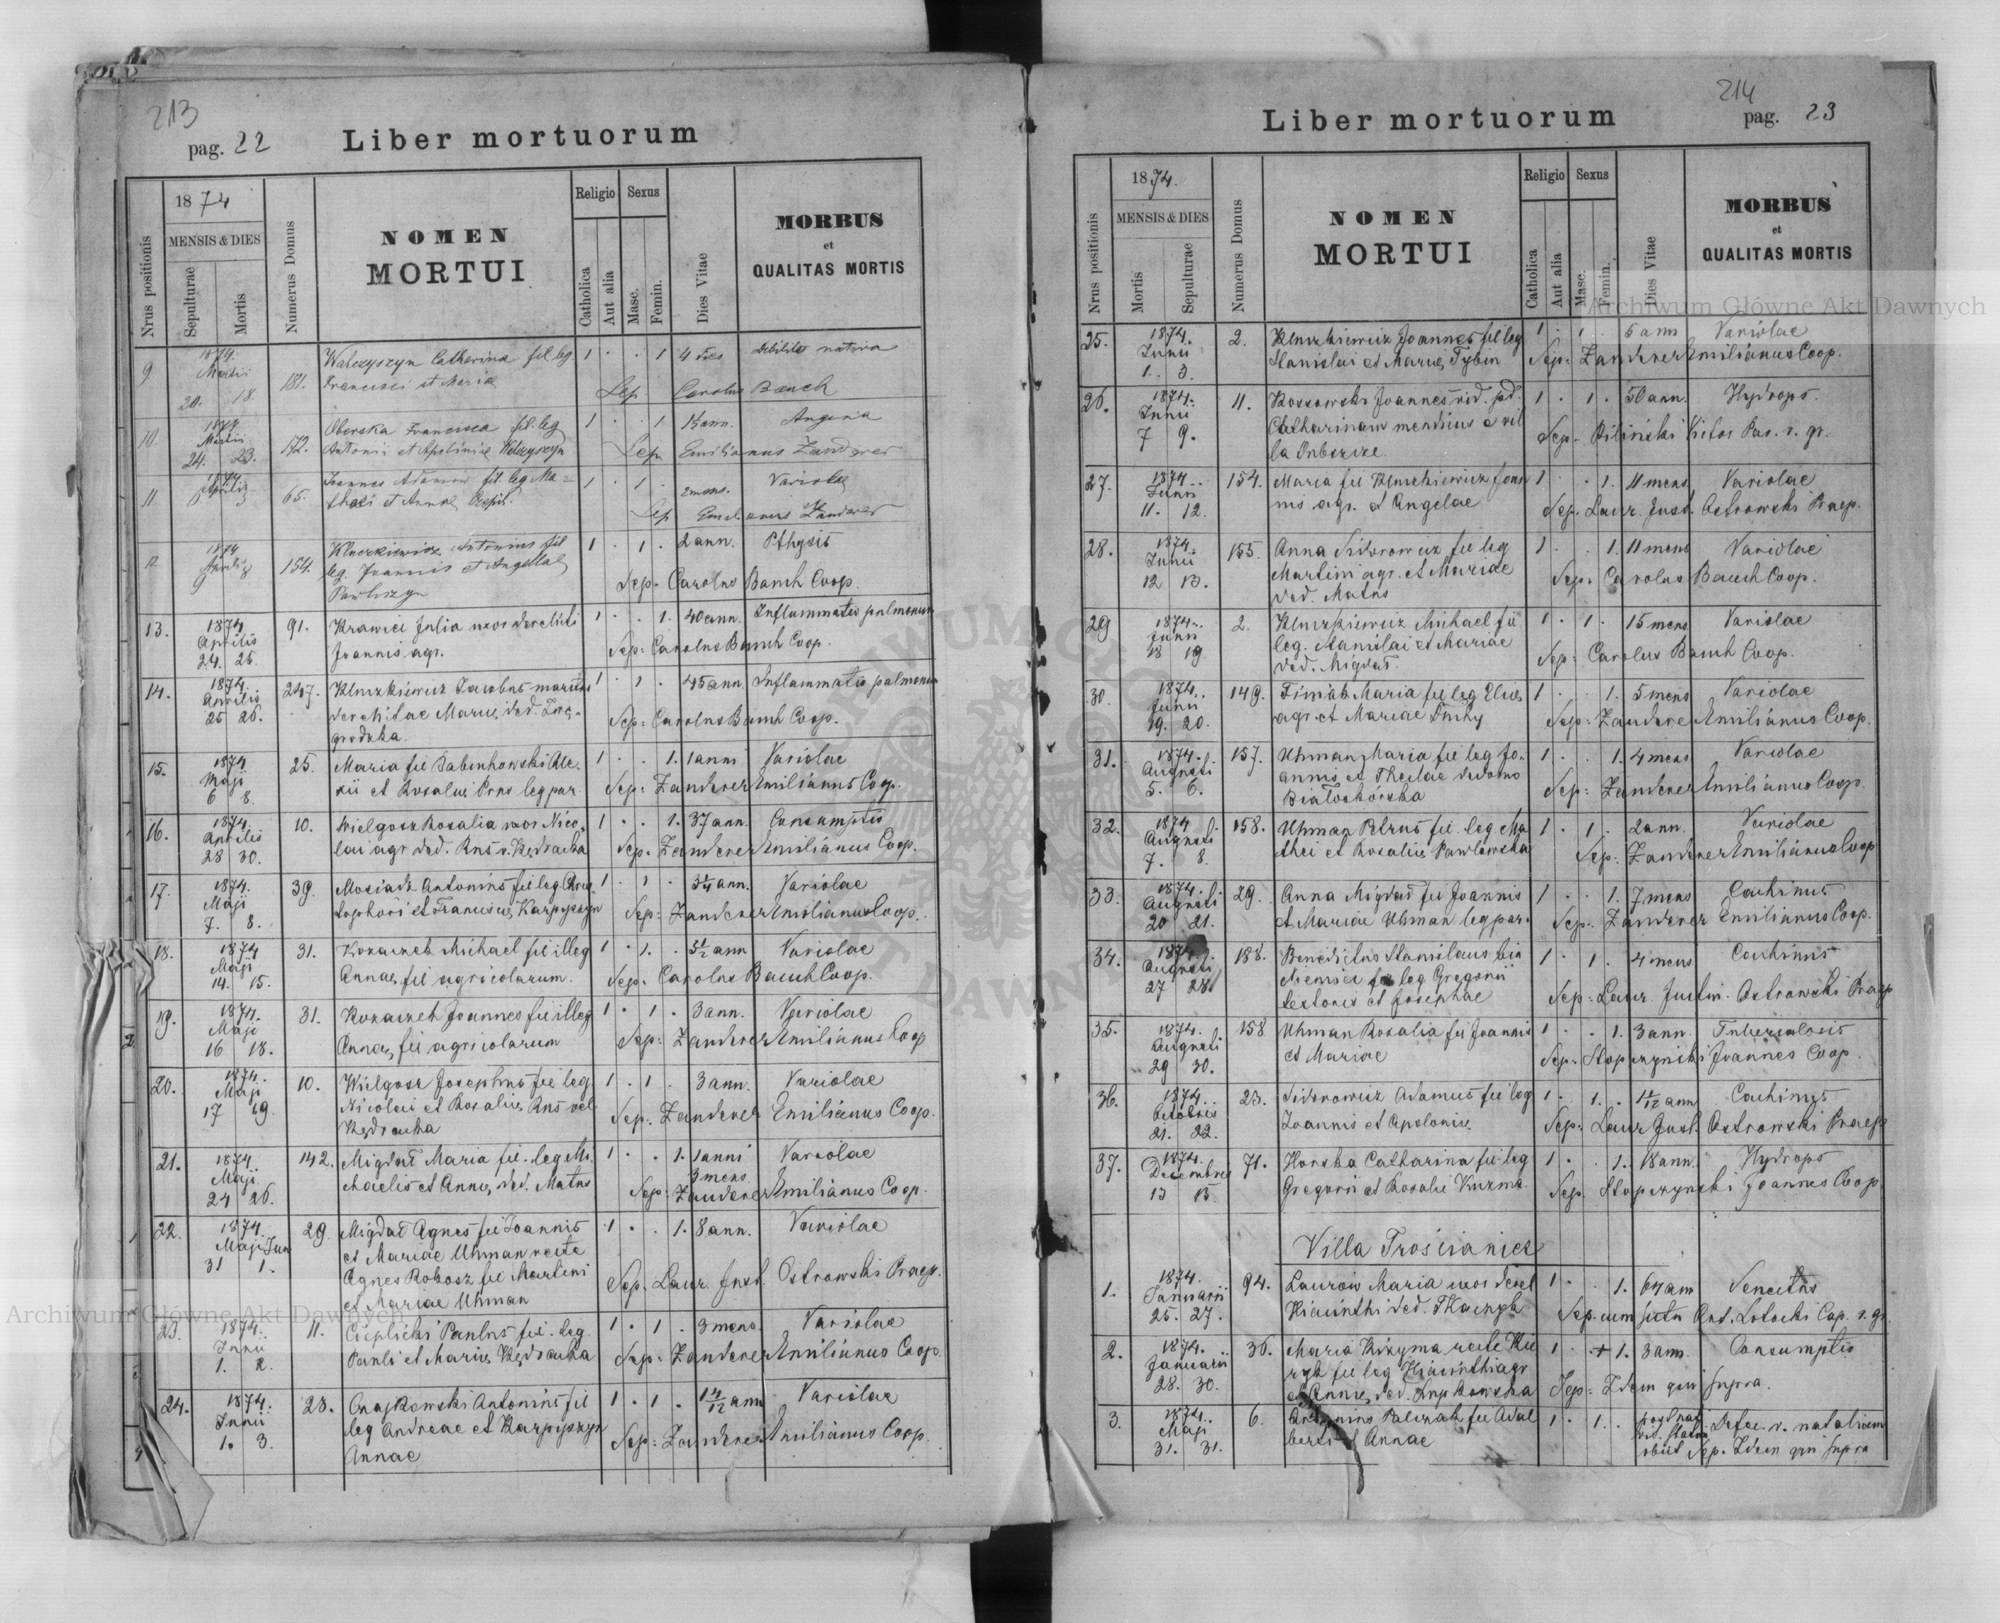 213
pag. 22
Liber mortuorum
Nrus positionis
1874
MENSIS & DIES
Sepulturae
Mortis
Numerus Domus
NOMEN
MORTUI
Religio
Sexus
Catholica
Aut alia
Masc.
Femin.
Dies Vitae
MORBUS
et
QUALITAS MORTIS
9
1874
Martii
20. 18.
181.
Walczyszyn Catherina fil. leg
Francisci et Maria
1 . . 1
4 dies
debilitas nativa
Sep. Carolus Bauch
10.
1874
Martii
24. 23.
172.
Oberska Francisca fil. leg
Antonii et Apoloniae Walczyszyn
1 . . 1
ann.
Angina
Sep Emilianus Zanderer
11
1874
Aprilis
3
65.
Joannes Adamow fil. leg. Ma=
thaei et Annae
1 . 1 .
2 mens.
Variolae
Sep Emilianus Zanderer
12
1874
Aprilis
9
154.
Kluczkiewicz Antonius fil
leg. Joannis et Angellae
Pawliszyn
1 . 1 .
2 ann.
Pthysis
Sep. Carolus Bauch Coop.
13.
1874.
Aprilis
24. 25.
91.
Krawiec Julia uxor derelicti
Joannis agr.
1 . . 1.
40 ann.
Inflammatio pulmonum
Sep: Carolus Bauch Coop.
14.
1874
Aprilis
25 26.
247.
Kluczkiewicz Jacobus maritus
derelictae Mariae, ded. Za-
grodzka.
1 . 1 .
45 ann.
Inflammatio pulmonum
Sep: Carolus Bauch Coop.
15.
1874
Maji
6 8.
25.
Maria fil Babinkowski Ale.
xii et Rosaliae Prus leg par.
1 . . 1.
1 anni
Variolae
Sep: Zanderer Emilianus Coop.
16.
1874.
Aprilis
28 30.
10.
Wielgosz Rosalia uxor Nico-
lai agr. ded. Kuś v. Kędracka
1 . . 1.
37 ann.
Consumptio
Sep. Zanderer Emilianus Coop.
17.
1874.
Maji
7. 8.
39.
Mosiadz Antonius fil leg
et Franciscae Karpyszyn
1 . 1 .
3¼ ann.
Variolae
Sep: Zanderer Emilianus Coop.
18.
1874
Maji
14. 15.
31.
Kozaczek Michael fil illeg
Annae, fil agricolarum.
1 . 1. .
5½ ann
Variolae
Sep: Carolus Bauch Coop.
19.
1874.
Maji
16 18.
31.
Kozaczek Joannes fil illeg
Annae, fil agricolarum
1 . 1 .
3 ann.
Variolae
Sep: Zanderer Emilianus Coop
20.
1874.
Maji
17 19.
10.
Wielgosz Josephus fil leg
Nicolai et Rosaliae, Kuś vel
Kędracka
1 . 1 .
3 ann.
Variolae
Sep: Zanderer Emilianus Coop.
21.
1874.
Maji
24 26.
142.
Migdał Maria fil. leg Mi.
chaelis et Annae, ded. Matus
1 . . 1.
1 anni
3 mens.
Variolae
Sep: Zanderer Emilianus Coop.
22.
1874.
Maji Jun
31 1.
29.
Migdał Agnes fil Joannis
et Mariae Uhman recte
Agnes Rokosz fil Martini
et Mariae Uhman
1 . . 1.
8 ann.
Variolae
Sep. Laur. Just. Ostrowski Praep.
23.
1874.
Junii
1. 2.
11.
Cieplicki Paulus fil. leg.
Pauli et Mariae, Kędracka
1 . 1 .
3 mens.
Variolae
Sep: Zanderer Emilianus Coop.
24.
1874.
Junii
1. 3.
28.
Czajkowski Antonius fil
leg Andreae et Karpyszyn
Annae
1 . 1 .
ann
Variolae
Sep: Zanderer Emilianus Coop.
214
pag. 23
Liber mortuorum
Nrus positionis
1874.
MENSIS & DIES
Mortis
Sepulturae
Numerus Domus
NOMEN
MORTUI
Religio
Sexus
Catholica
Aut alia
Masc.
Femin.
Dies Vitae
MORBUS
et
QUALITAS MORTIS
25.
1874.
Junii
1. 3.
2.
Kluczkiewicz Joannes fil leg
Stanislai et Mariae, Tybin
1 . 1 .
5 ann
Variolae
Sep: Zanderer Emilianus Coop.
26.
1874.
Junii
7 9.
11.
Kossowski Joannes vid. pd.
Catharinam mendicus e vil
la Dobszcze
1 . 1 .
50 ann.
Hydrops.
Sep. Biliński Victor Par. r. gr.
27.
1874.
Junii
11. 12.
154.
Maria fil Kluczkiewicz Joan
nis agr. et Angelae
1 . . 1.
11 mens
Variolae
Sep. Laur. Just. Ostrowski Praep.
28.
1874.
Junii
12 13.
155.
Anna Sidorowicz fil leg
Martini agr. et Mariae
ded. Matus
1 . . 1.
11 mens
Variolae
Sep: Carolus Bauch Coop.
29
1874.
Junii
18 19.
2.
Kluczkiewicz Michael fil
leg. Stanislai et Mariae
ded. Migdał.
1 . 1 .
15 mens
Variolae
Sep: Carolus Bauch Coop.
30.
1874.
Junii
19. 20.
149.
Maria fil leg Eliae,
agr. et Mariae Duhy
1 . . 1.
5 mens
Variolae
Sep: Zanderer Emilianus Coop.
31.
1874.
Augusti
5. 6.
157.
Uhman Maria fil leg Jo-
annis, et Theclae de domo
Białoskórska
1 . . 1.
4 mens
Variolae
Sep: Zanderer Emilianus Coop.
32.
1874.
Augusti
7. 8.
158.
Uhman Petrus fil. leg Ma
thei et Rosaliae Pawlowska
1 . 1 .
2 ann.
Variolae
Sep: Zanderer Emilianus Coop
33.
1874.
Augusti
20 21.
29.
Anna Migdał fil Joannis
et Mariae Uhman leg par.
1 . . 1.
7 mens
Cachinus
Sep: Zanderer Emilianus Coop.
34.
1874.
Augusti
27 28.
188.
Benedictus Stanislaus bin
Niemiec fil leg Gregorii
textoris et Josephae
1 . 1 .
4 mens
Cachinus
Sep: Laur. Justin. Ostrowski Praep
35.
1874.
Augusti
29 30.
158
Uhman Rosalia fil Joannis
et Mariae
1 . . 1.
3 ann.
Tuberculosis
Sep: Stopczynski Joannes Coop.
36.
1874.
Octobris
21. 22.
23.
Sidorowicz Adamus fil leg
Joannis et Apoloniae
1 . 1. .
1 1/12 ann
Cachinus
Sep: Laur Just. Ostrowski Praep
37.
1874.
Decembris
13 15.
71.
Horska Catharina fil leg
Gregorii et Rosalie Kuzma
1 . . 1.
18 ann.
Hydrops
Sep. Stopczynski Joannes Coop.
Villa Trościaniec
1.
1874.
Januarii
25. 27.
94.
Laurow Maria uxor derel
Hiacinthi ded. Tkaczyk
1 . . 1.
64 ann
Senectus
Sep. cum Ant. Lotocki Cap. r. gr.
2.
1874.
Januarii
28. 30.
36.
Maria Kizyma recte Kie
ryk fil leg Hiacinthi agr
et Annae, ded. Lupkowska
1 . + 1.
3 ann.
Consumptio
Sep: Idem qui supra.
3.
1874.
Maji
31. 31.
6.
Antonius Palczak fil Adal
berti et Annae
1 . 1. .
post nat.
statu
obiit
natalium
Sep. Idem qui supra
Archiwum Główne Akt Dawnych
Archiwum Główne Akt Dawnych